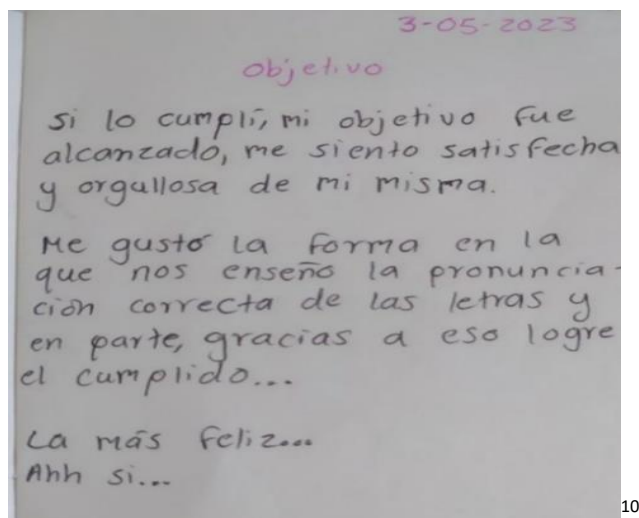 3-05-2023
Objetivo
Si lo cumplí, mi objetivo fue
alcanzado, me siento satisfecha
y orgullosa de mi misma.
Me gustó la forma en la
que nos enseño la pronuncia-
ción correcta de las letras y
en parte, gracias a eso logre
el cumplido...
La más feliz...
Ahh si...
10